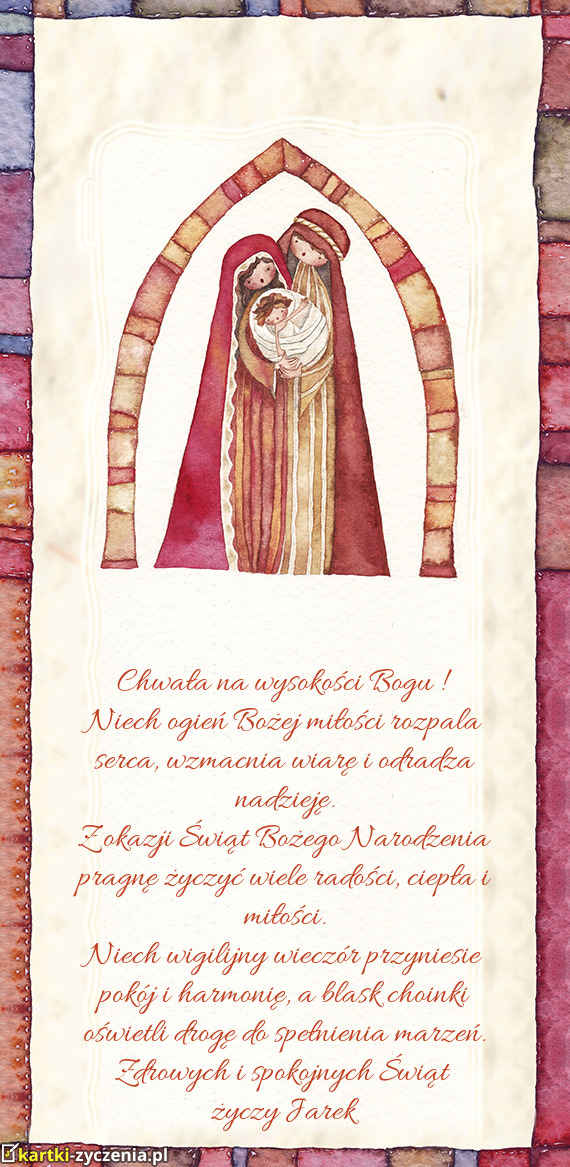 Chwała na wysokości Bogu !
Niech ogień Bożej miłości rozpala
serca, wzmacnia wiarę i odradza
nadzieję.
Z okazji Świąt Bożego Narodzenia
pragnę życzyć wiele radości, ciepła i
miłości.
Niech wigilijny wieczór przyniesie
pokój i harmonię, a blask choinki
oświetli drogę do spełnienia marzeń.
Zdrowych i spokojnych Świąt
życzy Jarek
kartki-zyczenia.pl